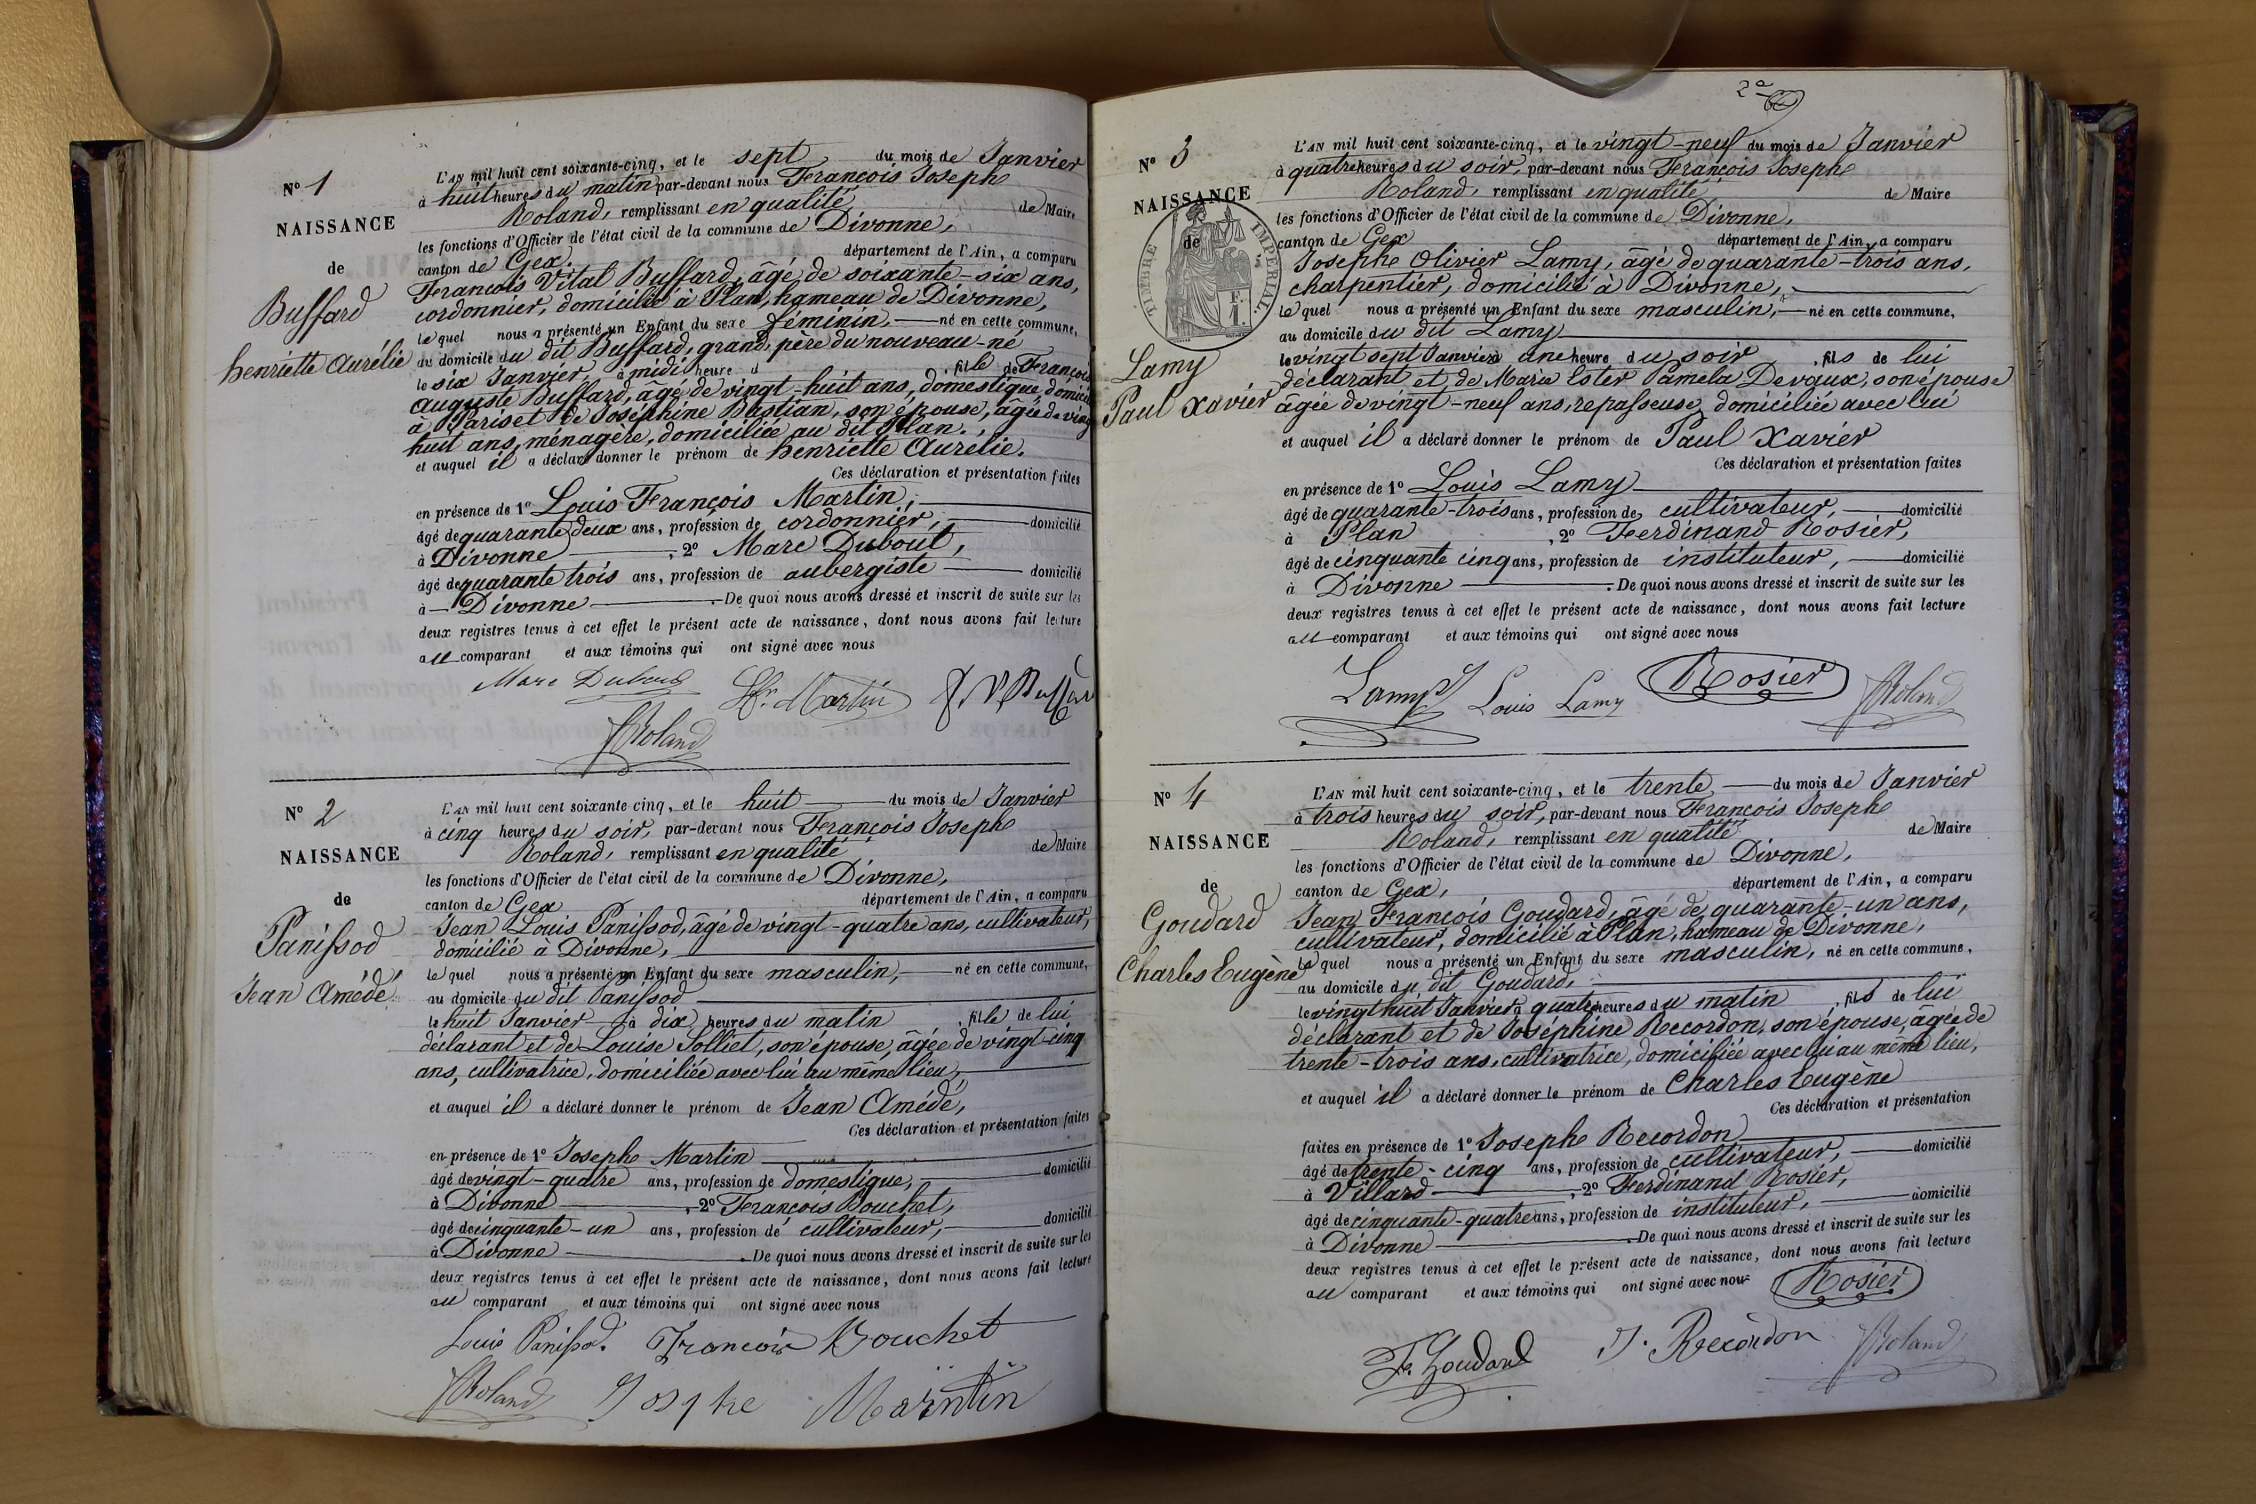 N° 1
NAISSANCE
de
Buffard
henriette Aurélie
L'AN mil huit cent soixante-cinq, et le sept du mois de Janvier
à huit heures du matin par-devant nous François Joseph
Roland, remplissant en qualité de Maire
les fonctions d'Officier de l'état civil de la commune de Divonne,
canton de Gex, département de l'Ain, a comparu
François Vital Buffard, âgé de soixante-six ans,
cordonnier, domicilié à Plan, hameau de Divonne,
lequel nous a présenté un Enfant du sexe féminin, né en cette commune,
au domicile du dit Buffard, grand père du nouveau-né
le six Janvier à midi heure d , fille de François
Auguste Buffard, âgé de vingt-huit ans, domestique, domicilié
à Paris et de Joséphine Bastian, son épouse, âgée de vingt
huit ans, ménagère, domiciliée au dit Plan.
et auquel il a déclaré donner le prénom de henriette Aurélie.
Ces déclaration et présentation faites
en présence de 1° Louis François Martin,
âgé de quarante deux ans, profession de cordonnier, domicilié
à Divonne , 2° Marc Dubout,
âgé de quarante trois ans, profession de aubergiste domicilié
à Divonne . De quoi nous avons dressé et inscrit de suite sur les
deux registres tenus à cet effet le présent acte de naissance, dont nous avons fait lecture
au comparant et aux témoins qui ont signé avec nous
Marc Dubout Martin Buffard
JRoland
N° 2
NAISSANCE
de
Panissod
Jean Amédé.
L'AN mil huit cent soixante cinq, et le huit du mois de Janvier
à cinq heures du soir, par-devant nous François Joseph
Roland, remplissant en qualité de Maire
les fonctions d'Officier de l'état civil de la commune de Divonne,
canton de Gex département de l'Ain, a comparu
Jean Louis Panissod, âgé de vingt-quatre ans, cultivateur,
domicilié à Divonne,
lequel nous a présenté un Enfant du sexe masculin, né en cette commune,
au domicile du dit Panissod
le huit Janvier à dix heures du matin , fille de lui
déclarant et de Louise Jolliet, son épouse, âgée de vingt-cinq
ans, cultivatrice, domiciliée avec lui au même lieu,
et auquel il a déclaré donner le prénom de Jean Amédé,
Ces déclaration et présentation faites
en présence de 1° Joseph Martin
âgé de vingt-quatre ans, profession de domestique, domicilié
à Divonne , 2° François Bouchet,
âgé de cinquante-un ans, profession de cultivateur, domicilié
à Divonne . De quoi nous avons dressé et inscrit de suite sur les
deux registres tenus à cet effet le présent acte de naissance, dont nous avons fait lecture
au comparant et aux témoins qui ont signé avec nous
Louis Panissod. François Bouchet
JRoland Josqhe Mairntin
2e
N° 3
NAISSANCE
de
TIMBRE IMPERIAL.
F.
1.
Lamy
Paul Xavier
L'AN mil huit cent soixante-cinq, et le vingt-neuf du mois de Janvier
à quatre heures du soir, par-devant nous François Joseph
Roland, remplissant en qualité de Maire
les fonctions d'Officier de l'état civil de la commune de Divonne,
canton de Gex département de l'Ain, a comparu
Joseph Olivier Lamy, âgé de quarante-trois ans,
charpentier, domicilié à Divonne,
lequel nous a présenté un Enfant du sexe masculin, né en cette commune,
au domicile du dit Lamy
le vingt sept Janvier à une heure du soir , fils de lui
déclarant et de Marie Ester Paméla Devaux, son épouse
âgée de vingt-neuf ans, repasseuse, domiciliée avec lui
et auquel il a déclaré donner le prénom de Paul Xavier
Ces déclaration et présentation faites
en présence de 1° Louis Lamy
âgé de quarante-trois ans, profession de cultivateur, domicilié
à Plan , 2° Ferdinand Rosier,
âgé de cinquante cinq ans, profession de instituteur, domicilié
à Divonne . De quoi nous avons dressé et inscrit de suite sur les
deux registres tenus à cet effet le présent acte de naissance, dont nous avons fait lecture
au comparant et aux témoins qui ont signé avec nous
Lamy Louis Lamy Rosier JRoland
N° 4
NAISSANCE
de
Goudard
Charles Eugène
L'AN mil huit cent soixante-cinq, et le trente du mois de Janvier
à trois heures du soir, par-devant nous François Joseph
Roland, remplissant en qualité de Maire
les fonctions d'Officier de l'état civil de la commune de Divonne,
canton de Gex, département de l'Ain, a comparu
Jean François Goudard, âgé de quarante-un ans,
cultivateur, domicilié à Plan, hameau de Divonne,
lequel nous a présenté un Enfant du sexe masculin, né en cette commune,
au domicile du dit Goudard,
le vingt huit Janvier à quatre heures du matin , fils de lui
déclarant et de Joséphine Recordon, son épouse, âgée de
trente-trois ans, cultivatrice, domiciliée avec lui au même lieu,
et auquel il a déclaré donner le prénom de Charles Eugène
Ces déclaration et présentation
faites en présence de 1° Joseph Recordon
âgé de trente-cinq ans, profession de cultivateur, domicilié
à Villard , 2° Ferdinand Rosier,
âgé de cinquante-quatre ans, profession de instituteur, domicilié
à Divonne . De quoi nous avons dressé et inscrit de suite sur les
deux registres tenus à cet effet le présent acte de naissance, dont nous avons fait lecture
au comparant et aux témoins qui ont signé avec nous Rosier
F. Goudard J. Recordon JRoland